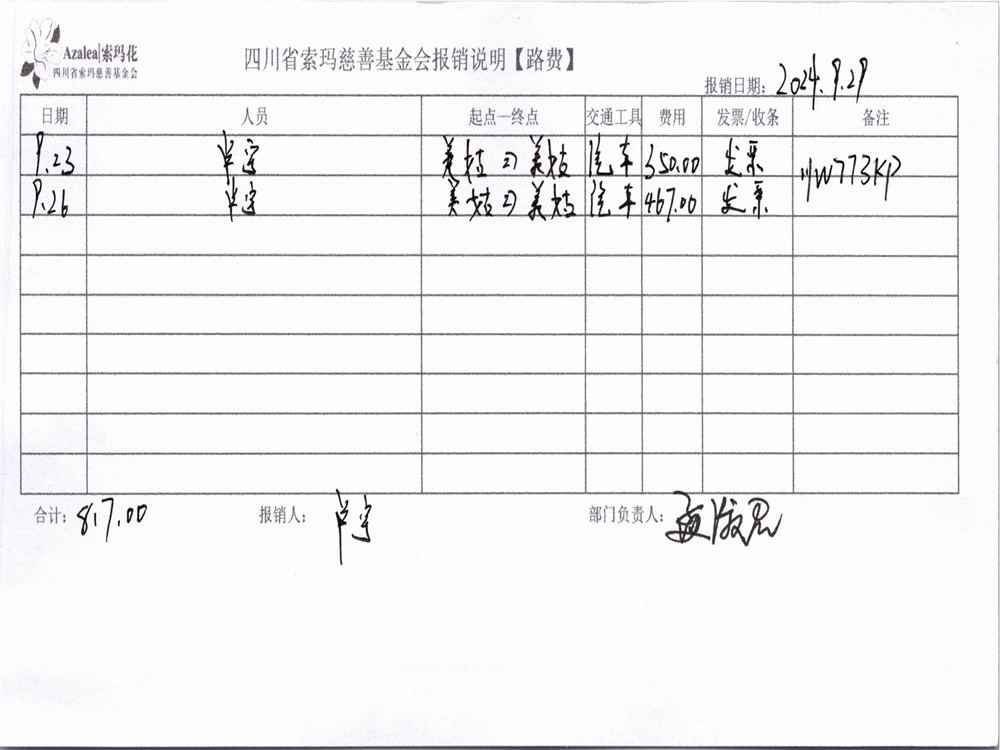 Azalea|索玛花
四川省索玛慈善基金会
四川省索玛慈善基金会报销说明【路费】
报销日期：2024.9.29
日期 人员 起点—终点 交通工具 费用 发票/收条 备注
9.23 美姑 美姑 汽车 350.00 发票 川W773KP
9.26 美姑 美姑 汽车 467.00 发票
合计：817.00 报销人： 部门负责人：